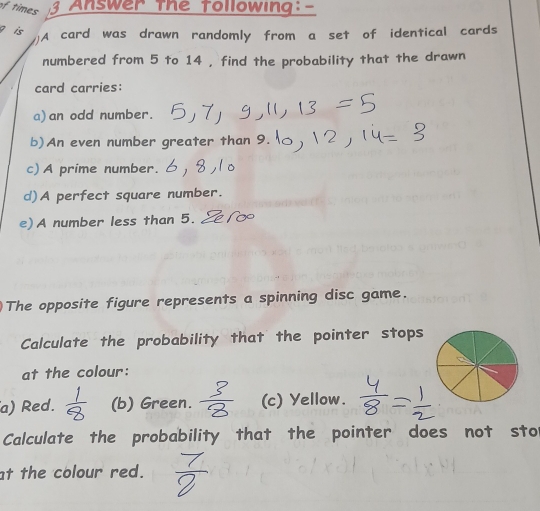 of times 3 Answer The following:-
is )A card was drawn randomly from a set of identical cards
numbered from 5 to 14 , find the probability that the drawn
card carries:
a) an odd number. 5, 7, 9, 11, 13 = 5
b) An even number greater than 9. 10, 12, 14 = 3
c) A prime number. 6, 8, 10
d) A perfect square number.
e) A number less than 5. Zeroo
) The opposite figure represents a spinning disc game.
Calculate the probability that the pointer stops
at the colour:
a) Red. 1/8 (b) Green. 3/8 (c) Yellow. 4/8 = 1/2
Calculate the probability that the pointer does not sto
at the colour red. 7/8